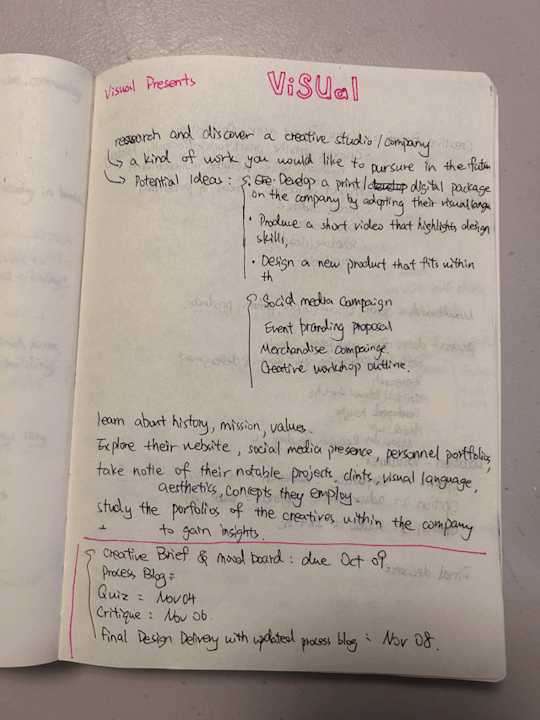 Visual Presents
ViSUal
research and discover a creative studio/company
a kind of work you would like to pursure in the future
Potential Ideas : Develop a print/ digital package
on the company by adopting their visual
• Produce a short video that highlights design
skills,
• Design a new product that fits within
th
Social media campaign
Event branding proposal
Merchandise
Creative workshop outline.
learn about history, mission, values.
Explore their website, social media presence, personnel portfolios,
take notie of their notable projects. clints, visual language,
aesthetics, concepts they employ.
study the porfolios of the creatives within the company
+ to gain insights.
Creative Brief & mood board : due Oct 09
Process Blog :
Quiz : Nov 04
Critique : Nov 06.
Final Design Delivery with updated process blog : Nov 08.